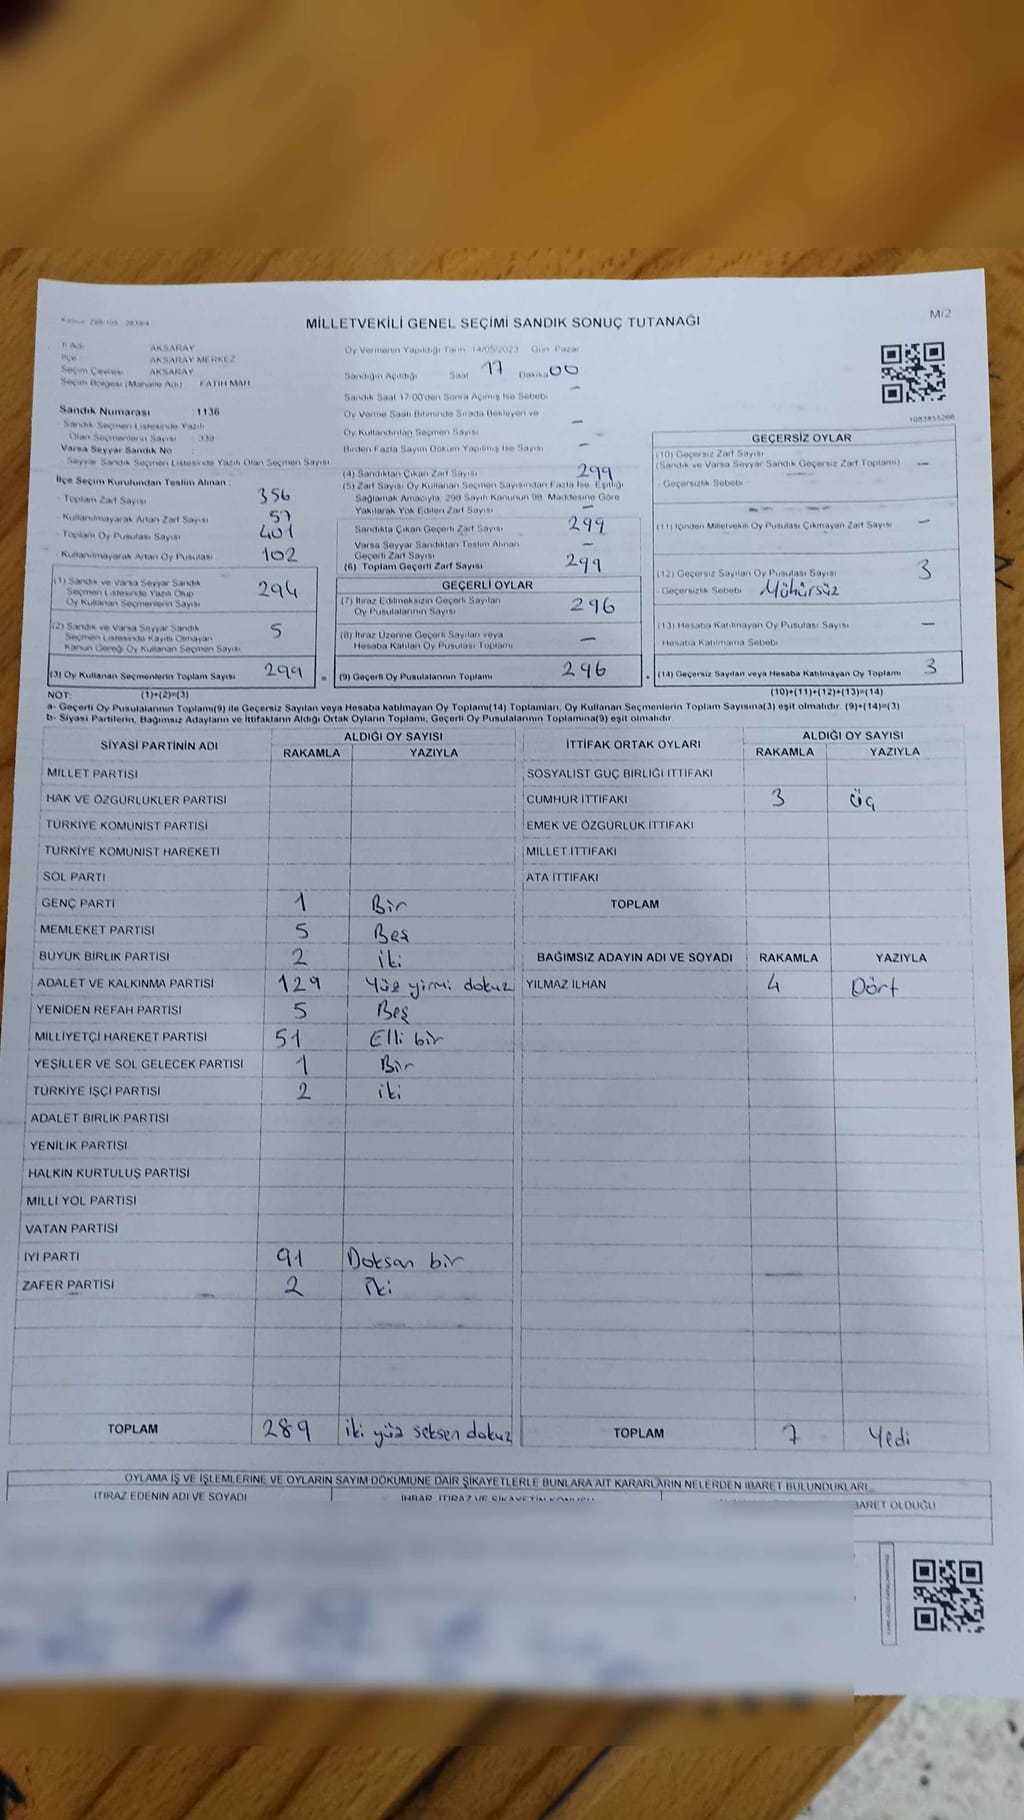 MİLLETVEKİLİ GENEL SEÇİMİ SANDIK SONUÇ TUTANAĞI
M/2
İl Adı AKSARAY
İlçe AKSARAY MERKEZ
Seçim Çevresi AKSARAY
Seçim Bölgesi (Mahalle Adı) FATİH MAH
Sandık Numarası : 1136
Sandık Seçmen Listesinde Yazılı
Olan Seçmenlerin Sayısı : 339
Varsa Seyyar Sandık No :
Seyyar Sandık Seçmen Listesinde Yazılı Olan Seçmen Sayısı
İlçe Seçim Kurulundan Teslim Alınan :
Toplam Zarf Sayısı 356
Kullanılmayarak Artan Zarf Sayısı 57
Toplam Oy Pusulası Sayısı 401
Kullanılmayarak Artan Oy Pusulası 102
(1) Sandık ve Varsa Seyyar Sandık
Seçmen Listesinde Yazılı Olup
Oy Kullanan Seçmenlerin Sayısı 294
(2) Sandık ve Varsa Seyyar Sandık
Seçmen Listesinde Kayıtlı Olmayan
Kanun Gereği Oy Kullanan Seçmen Sayısı 5
(3) Oy Kullanan Seçmenlerin Toplam Sayısı 299 =
Oy Vermenin Yapıldığı Tarih 14/05/2023 Gün Pazar
Sandığın Açıldığı Saat 17 Dakika 00
Sandık Saat 17:00'den Sonra Açılmış İse Sebebi –
Oy Verme Saati Bitiminde Sırada Bekleyen ve
Oy Kullandırılan Seçmen Sayısı –
Birden Fazla Sayım Döküm Yapılmış İse Sayısı –
(4) Sandıktan Çıkan Zarf Sayısı 299
(5) Zarf Sayısı Oy Kullanan Seçmen Sayısından Fazla İse, Eşitliği
Sağlamak Amacıyla, 298 Sayılı Kanunun 98. Maddesine Göre
Yakılarak Yok Edilen Zarf Sayısı –
Sandıkta Çıkan Geçerli Zarf Sayısı 299
Varsa Seyyar Sandıktan Teslim Alınan
Geçerli Zarf Sayısı –
(6) Toplam Geçerli Zarf Sayısı 299
GEÇERLİ OYLAR
(7) İtiraz Edilmeksizin Geçerli Sayılan
Oy Pusulalarının Sayısı 296
(8) İtiraz Üzerine Geçerli Sayılan veya
Hesaba Katılan Oy Pusulası Toplamı –
(9) Geçerli Oy Pusulalarının Toplamı 296 +
GEÇERSİZ OYLAR
(10) Geçersiz Zarf Sayısı
(Sandık ve Varsa Seyyar Sandık Geçersiz Zarf Toplamı) –
Geçersizlik Sebebi
(11) İçinden Milletvekili Oy Pusulası Çıkmayan Zarf Sayısı –
(12) Geçersiz Sayılan Oy Pusulası Sayısı 3
Geçersizlik Sebebi Mühürsüz
(13) Hesaba Katılmayan Oy Pusulası Sayısı –
Hesaba Katılmama Sebebi
(14) Geçersiz Sayılan veya Hesaba Katılmayan Oy Toplamı 3
NOT: (1)+(2)=(3) (10)+(11)+(12)+(13)=(14)
a- Geçerli Oy Pusulalarının Toplamı(9) ile Geçersiz Sayılan veya Hesaba katılmayan Oy Toplamı(14) Toplamları, Oy Kullanan Seçmenlerin Toplam Sayısına(3) eşit olmalıdır. (9)+(14)=(3)
b- Siyasi Partilerin, Bağımsız Adayların ve İttifakların Aldığı Ortak Oyların Toplamı, Geçerli Oy Pusulalarının Toplamına(9) eşit olmalıdır.
SİYASİ PARTİNİN ADI ALDIĞI OY SAYISI
RAKAMLA YAZIYLA
MİLLET PARTİSİ
HAK VE ÖZGÜRLÜKLER PARTİSİ
TÜRKİYE KOMÜNİST PARTİSİ
TÜRKİYE KOMÜNİST HAREKETİ
SOL PARTİ
GENÇ PARTİ 1 Bir
MEMLEKET PARTİSİ 5 Beş
BÜYÜK BİRLİK PARTİSİ 2 iki
ADALET VE KALKINMA PARTİSİ 129 Yüz yirmi dokuz
YENİDEN REFAH PARTİSİ 5 Beş
MİLLİYETÇİ HAREKET PARTİSİ 51 Elli bir
YEŞİLLER VE SOL GELECEK PARTİSİ 1 Bir
TÜRKİYE İŞÇİ PARTİSİ 2 iki
ADALET BİRLİK PARTİSİ
YENİLİK PARTİSİ
HALKIN KURTULUŞ PARTİSİ
MİLLİ YOL PARTİSİ
VATAN PARTİSİ
İYİ PARTİ 91 Doksan bir
ZAFER PARTİSİ 2 İki
TOPLAM 289 iki yüz seksen dokuz
İTTİFAK ORTAK OYLARI ALDIĞI OY SAYISI
RAKAMLA YAZIYLA
SOSYALİST GÜÇ BİRLİĞİ İTTİFAKI
CUMHUR İTTİFAKI 3 üç
EMEK VE ÖZGÜRLÜK İTTİFAKI
MİLLET İTTİFAKI
ATA İTTİFAKI
TOPLAM
BAĞIMSIZ ADAYIN ADI VE SOYADI RAKAMLA YAZIYLA
YILMAZ İLHAN 4 Dört
TOPLAM 7 Yedi
OYLAMA İŞ VE İŞLEMLERİNE VE OYLARIN SAYIM DÖKÜMÜNE DAİR ŞİKAYETLERLE BUNLARA AİT KARARLARIN NELERDEN İBARET BULUNDUKLARI
İTİRAZ EDENİN ADI VE SOYADI İHBAR, İTİRAZ VE ŞİKAYETİN KONUSU İBARET OLDUĞU